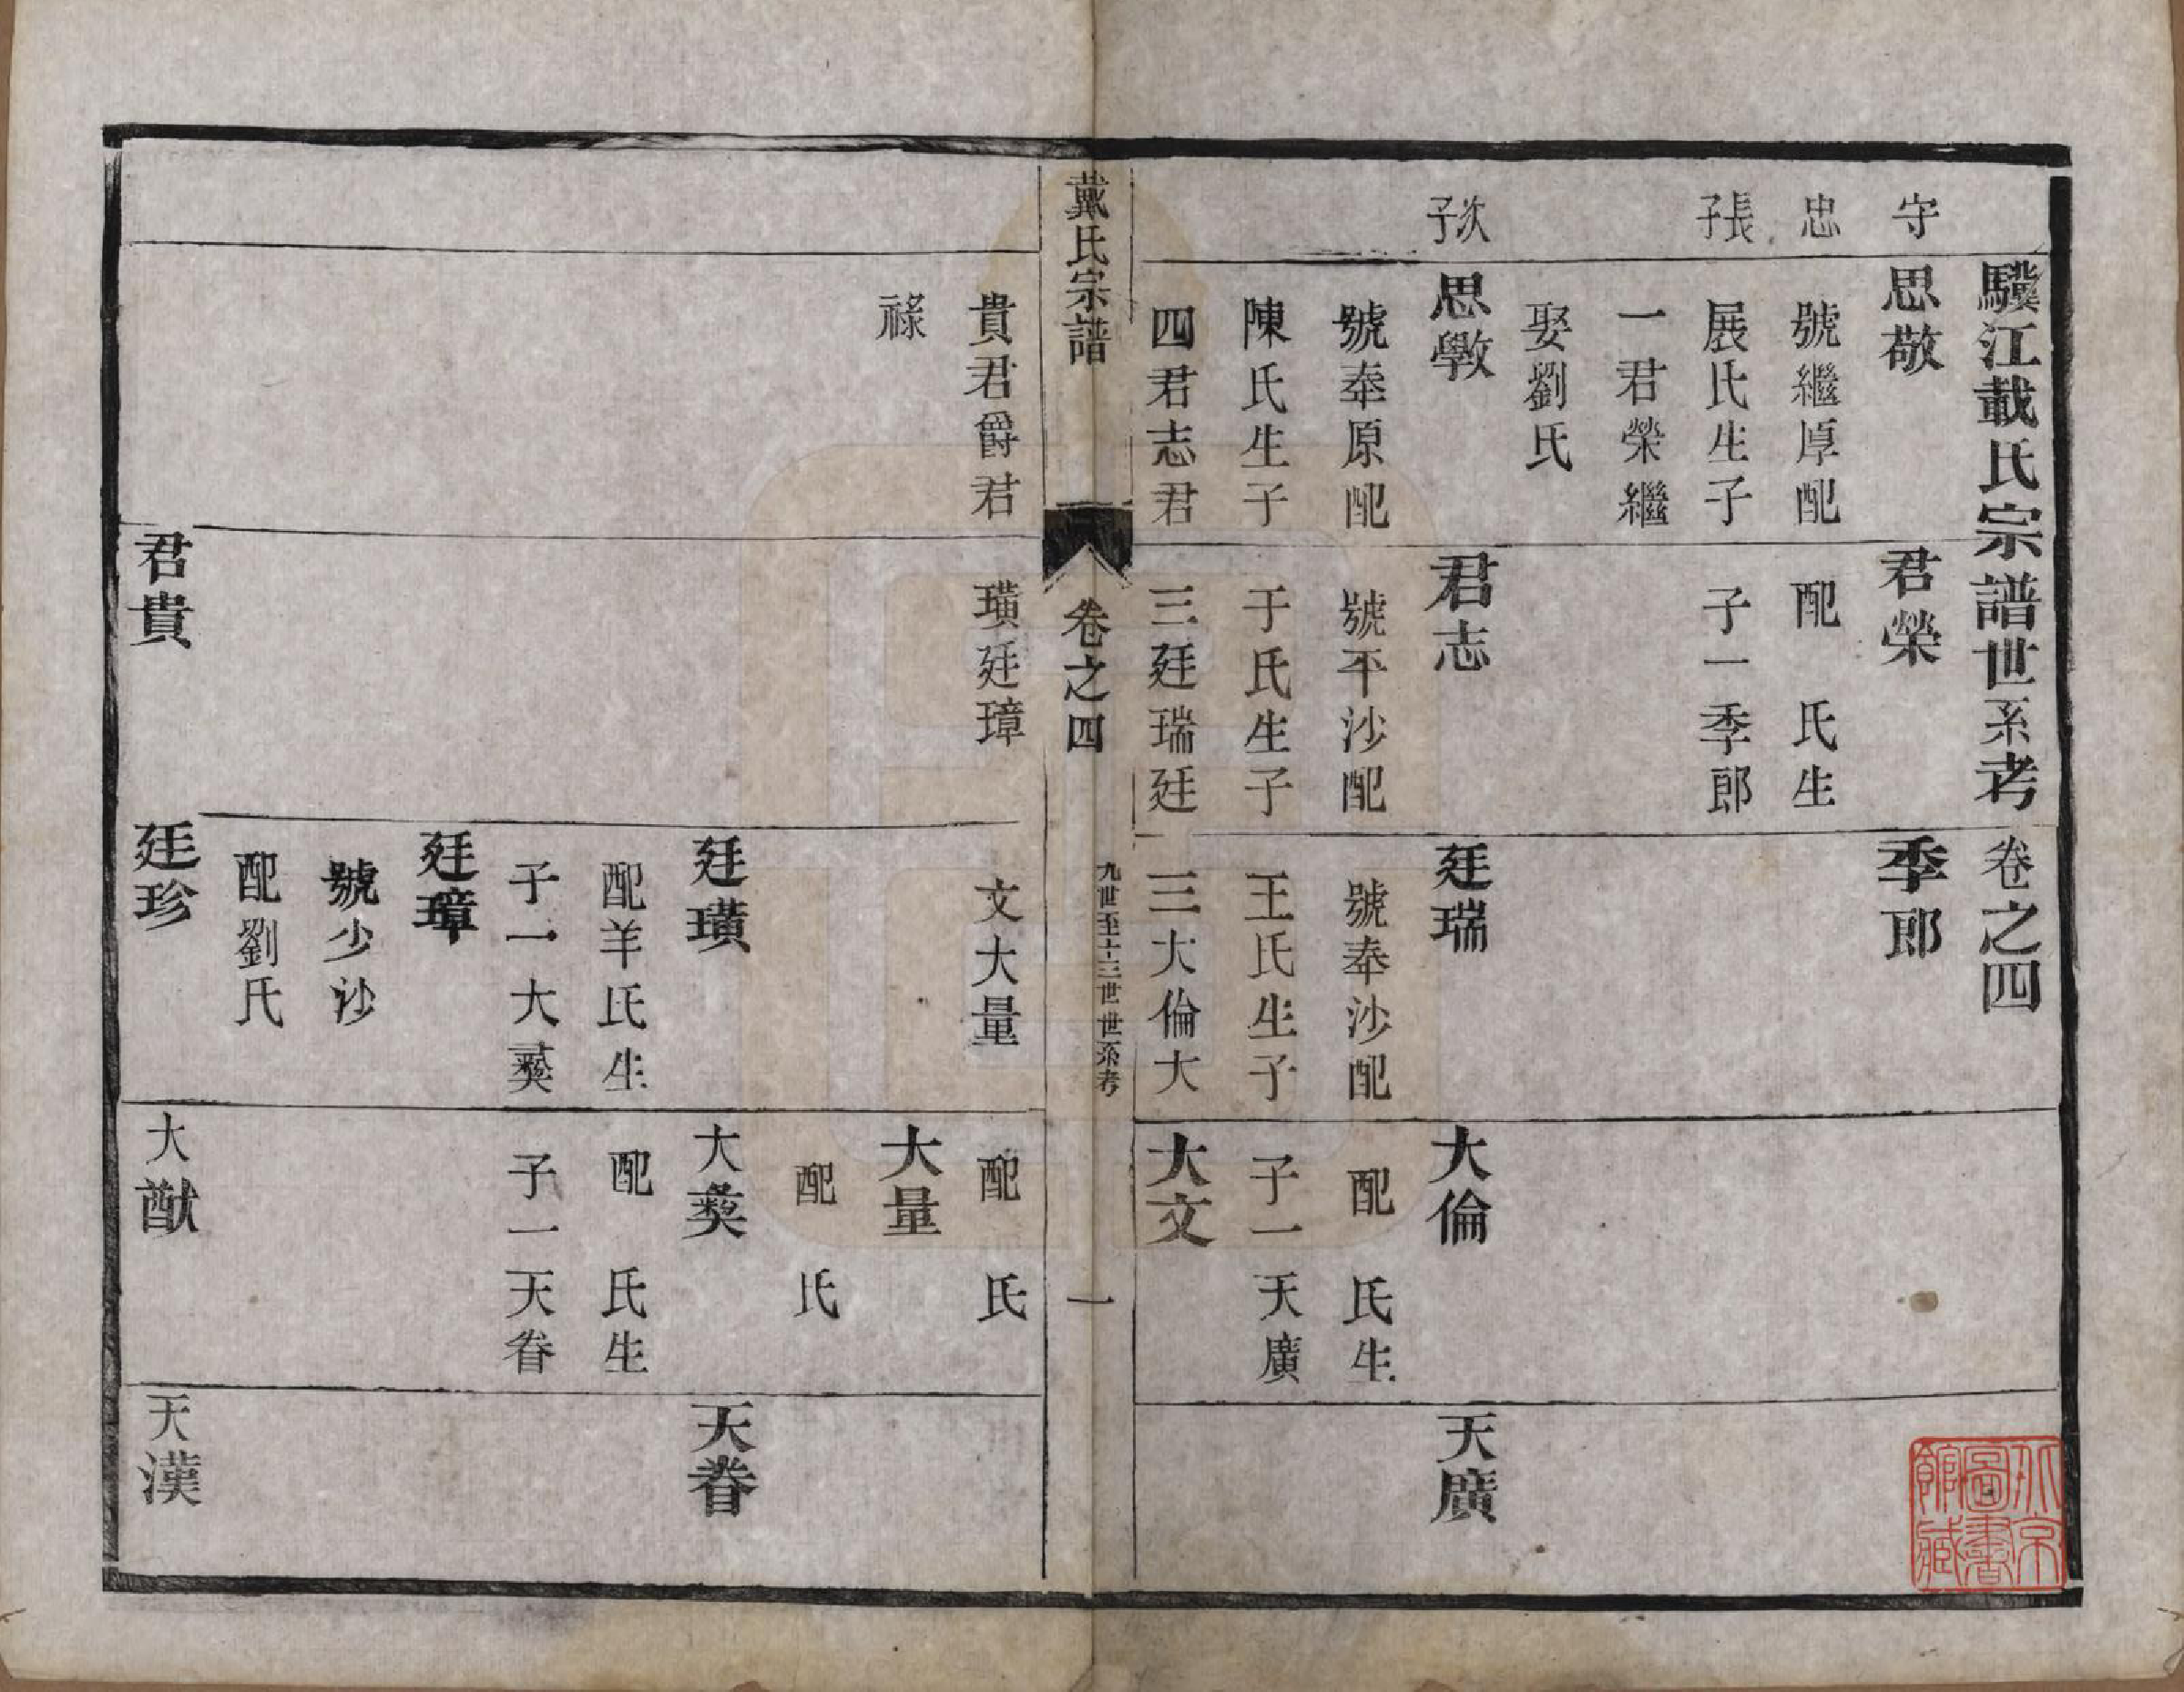 驥江戴氏宗譜世系考 卷之四
守
忠
長子
思敬
號繼厚配
展氏生子
一君榮繼
娶劉氏
君榮
配 氏生
子一季郎
季郎
次子
思斆
號奉原配
陳氏生子
四君志君
貴君爵君
祿
君志
號平沙配
于氏生子
三廷瑞廷
璜廷璋
廷瑞
號奉沙配
王氏生子
三大倫大
文大量
大倫
配 氏生
子一天廣
天廣
大文
配 氏
大量
配 氏
廷璜
配羊氏生
子一大蒵
大蒵
配 氏生
子一天眷
天眷
廷璋
號少沙
配劉氏
君貴
廷珍
大猷
天漢
戴氏宗譜
卷之四
九世至十三世世系考
一
北京
圖書
館藏